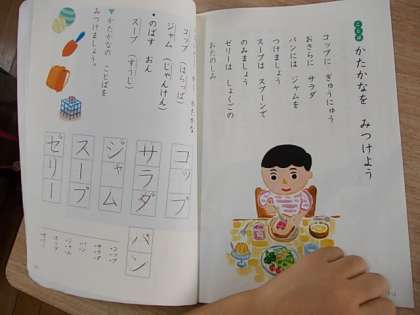 ことば
かたかなを みつけよう
コップに ぎゅうにゅう
おさらに サラダ
パンには ジャムを
つけましょう
スープは スプーンで
のみましょう
ゼリーは しょくごの
おたのしみ
コップ（はらっぱ）
ジャム（じゃんけん）
●のばす おん
スープ（すうじ）
▼かたかなの ことばを
みつけましょう。
コップ
サラダ
ジャム
スープ
ゼリー
パン